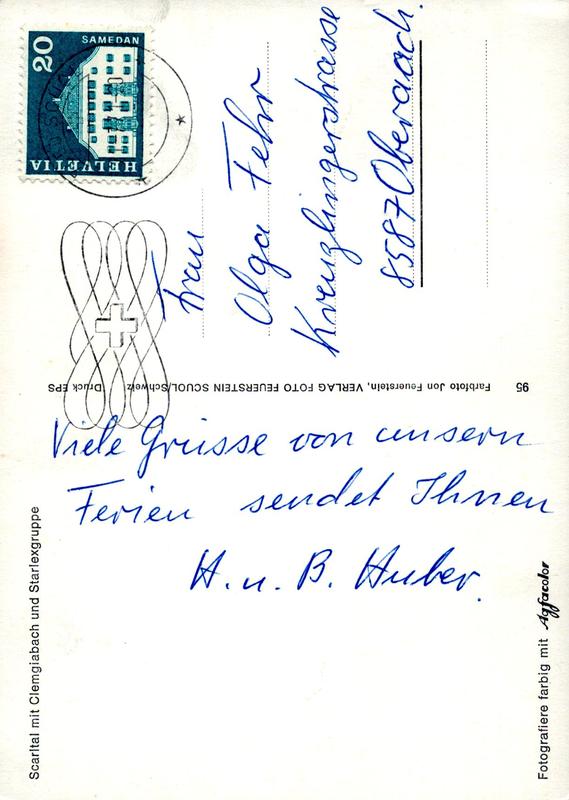 20
SAMEDAN
HELVETIA
Frau
Olga Fehr
Kreuzlingerstrasse
8587 Oberaach.
95 Farbfoto Jon Feuerstein, VERLAG FOTO FEUERSTEIN SCUOL/Schweiz Druck EPS
Viele Grüsse von unsern
Ferien sendet Ihnen
H. u. B. Huber.
Scarltal mit Clemgiabach und Starlexgruppe
Fotografiere farbig mit Agfacolor